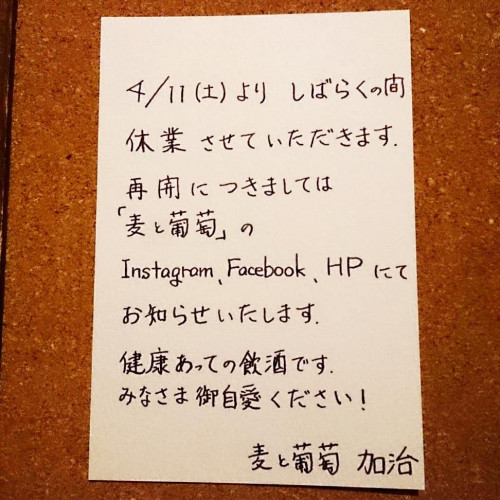 4/11(土)より しばらくの間
休業させていただきます.
再開につきましては
「麦と葡萄」の
Instagram、Facebook、HPにて
お知らせいたします.
健康あっての飲酒です.
みなさま御自愛ください!
麦と葡萄 加治